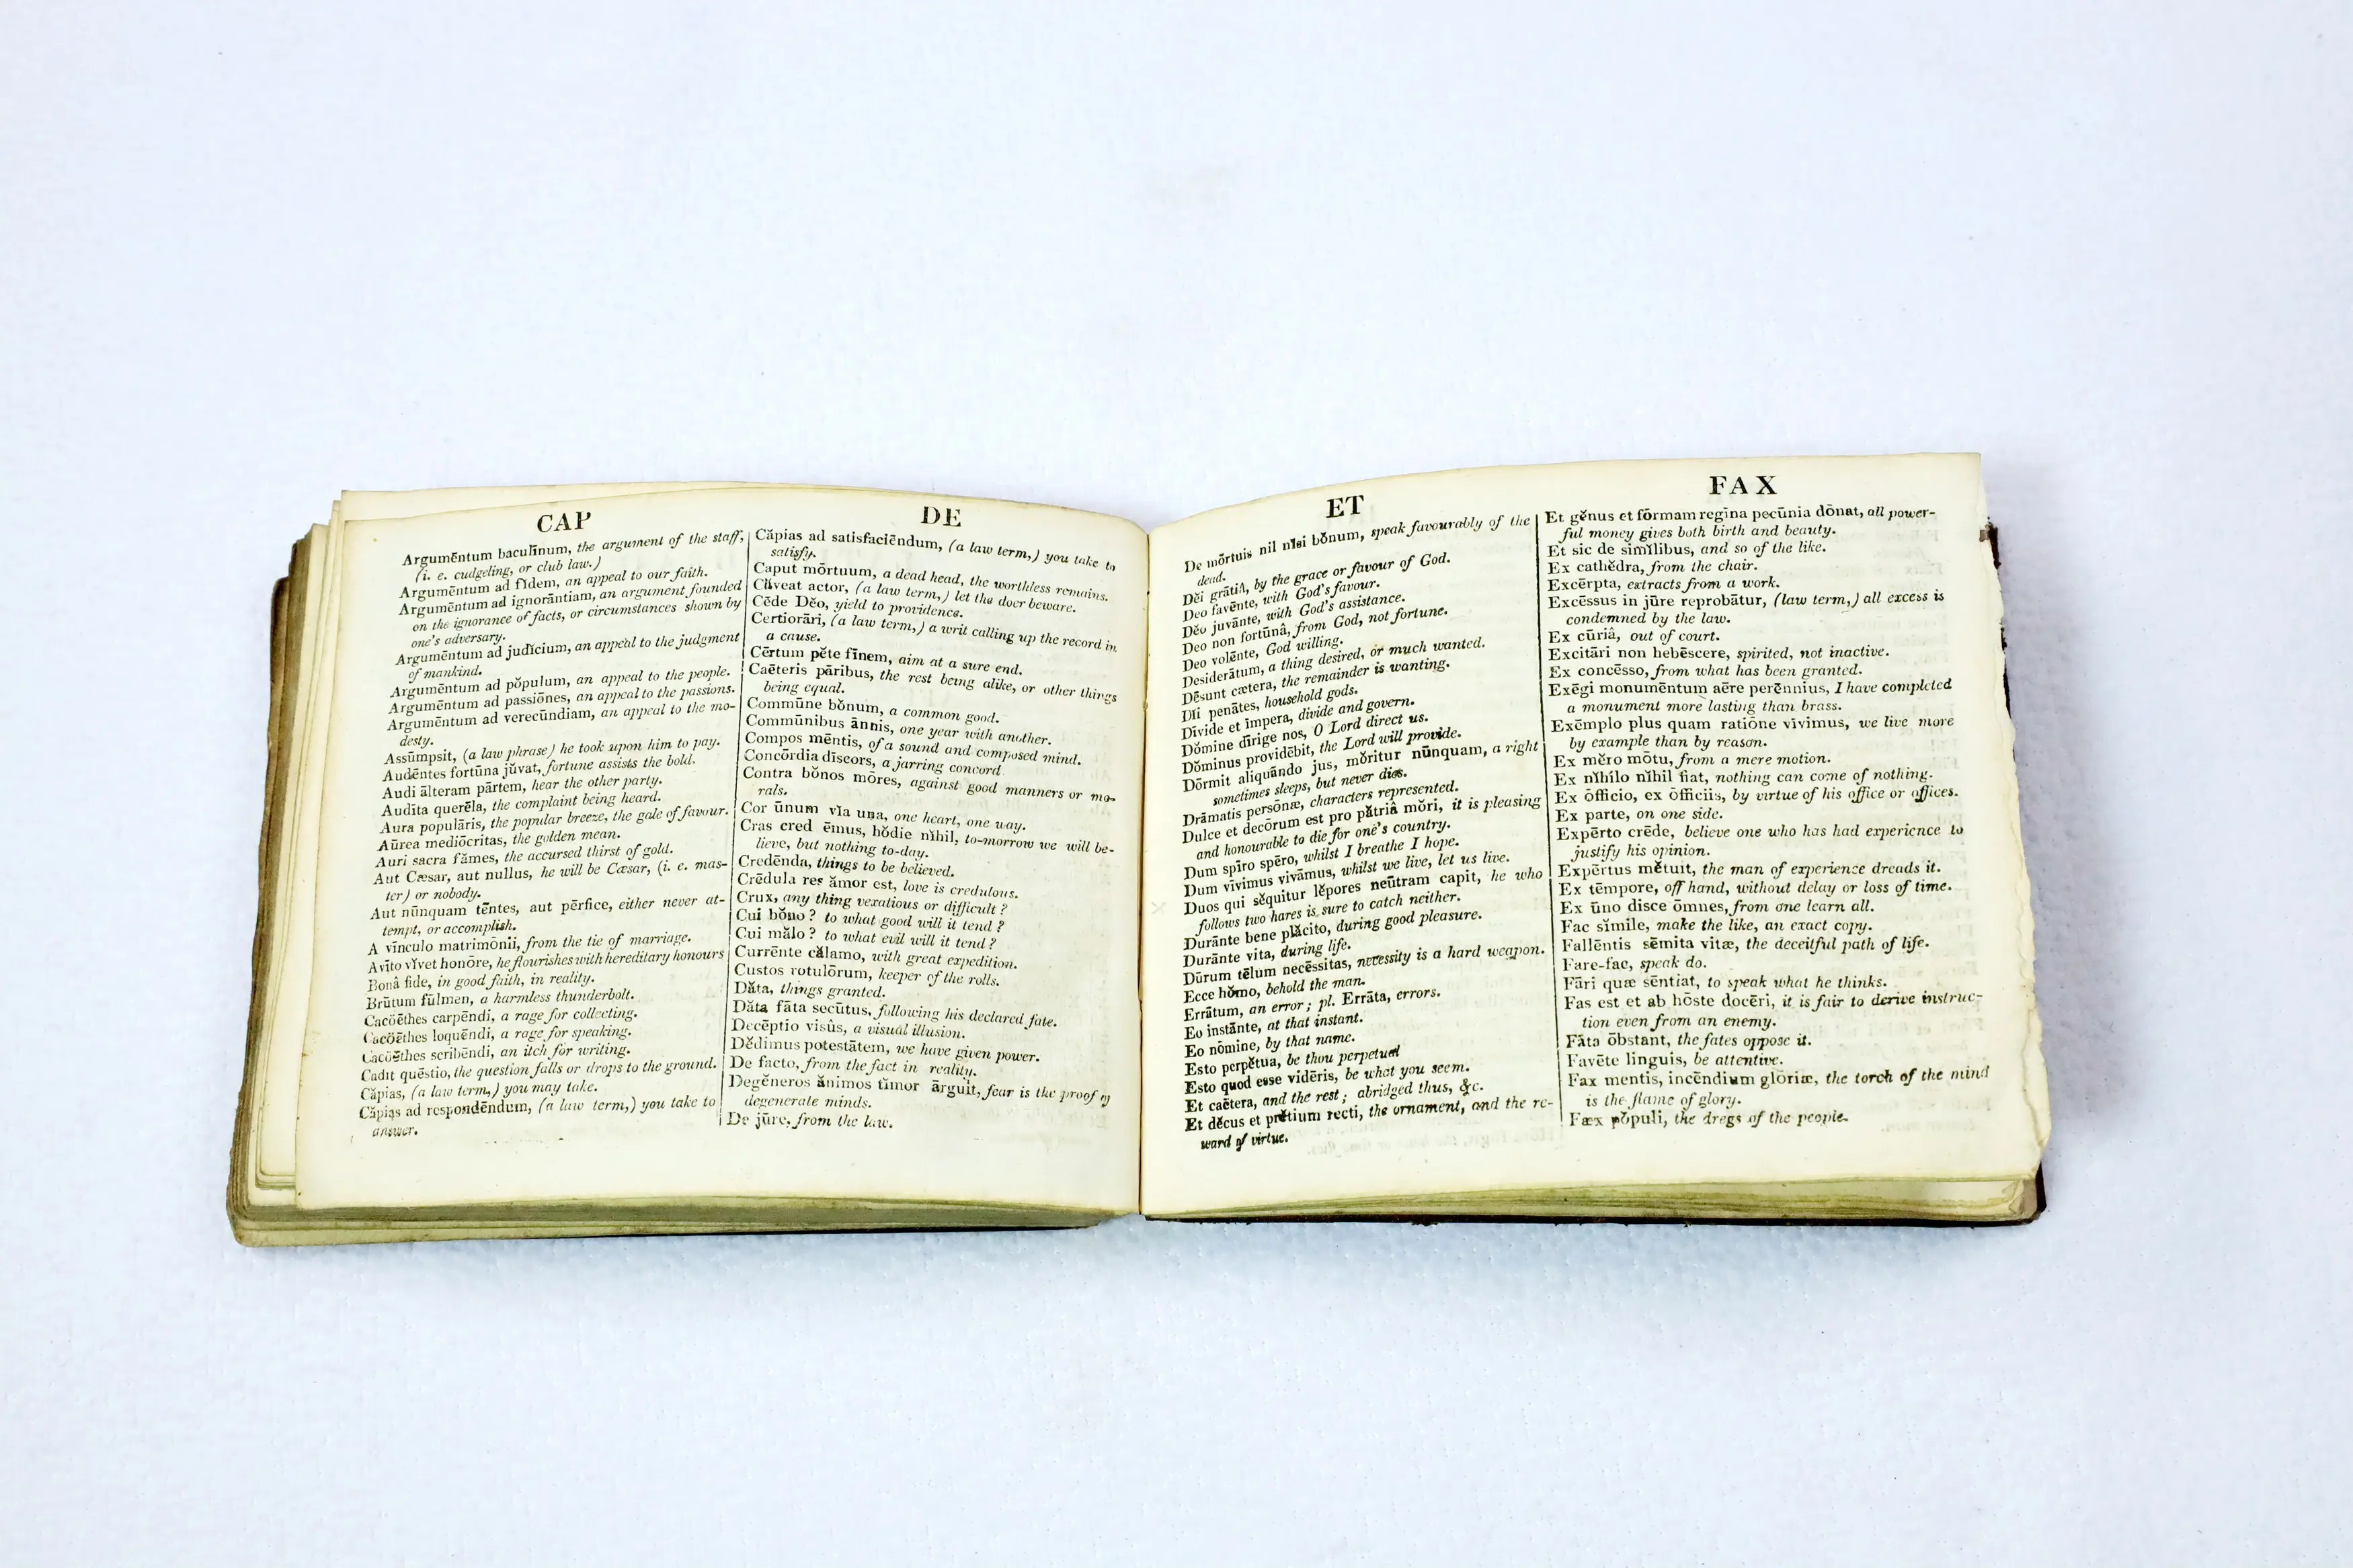 CAP
Argumēntum baculīnum, the argument of the staff,
(i. e. cudgeling, or club law.)
Argumēntum ad fīdem, an appeal to our faith.
Argumēntum ad ignorāntiam, an argument founded
on the ignorance of facts, or circumstances shown by
one's adversary.
Argumēntum ad judĭcium, an appeal to the judgment
of mankind.
Argumēntum ad pŏpulum, an appeal to the people.
Argumēntum ad passiōnes, an appeal to the passions.
Argumēntum ad verecūndiam, an appeal to the mo-
desty.
Assūmpsit, (a law phrase) he took upon him to pay.
Audēntes fortūna jŭvat, fortune assists the bold.
Audi ālteram pārtem, hear the other party.
Audīta querēla, the complaint being heard.
Aura populāris, the popular breeze, the gale of favour.
Aūrea mediōcritas, the golden mean.
Auri sacra fămes, the accursed thirst of gold.
Aut Cæsar, aut nullus, he will be Cæsar, (i. e. mas-
ter) or nobody.
Aut nūnquam tēntes, aut pērfice, either never at-
tempt, or accomplish.
A vīnculo matrimōnii, from the tie of marriage.
Avīto vīvet honōre, he flourishes with hereditary honours
Bonâ fide, in good faith, in reality.
Brūtum fūlmen, a harmless thunderbolt.
Cacöēthes carpēndi, a rage for collecting.
Cacöēthes loquēndi, a rage for speaking.
Cacöēthes scribēndi, an itch for writing.
Cadit quēstio, the question falls or drops to the ground.
Căpias, (a law term,) you may take.
Căpias ad respondēndum, (a law term,) you take to
answer.
DE
Căpias ad satisfaciēndum, (a law term,) you take to
satisfy.
Caput mōrtuum, a dead head, the worthless remains.
Căveat actor, (a law term,) let the doer beware.
Cēde Dĕo, yield to providence.
Certiorāri, (a law term,) a writ calling up the record in
a cause.
Cērtum pĕte fīnem, aim at a sure end.
Caēteris pāribus, the rest being alike, or other things
being equal.
Commūne bŏnum, a common good.
Commūnibus ānnis, one year with another.
Compos mēntis, of a sound and composed mind.
Concōrdia discors, a jarring concord
Contra bŏnos mōres, against good manners or mo-
rals.
Cor ūnum vĭa una, one heart, one way.
Cras cred ēmus, hŏdie nĭhil, to-morrow we will be-
lieve, but nothing to-day.
Credēnda, things to be believed.
Crēdula res ămor est, love is credulous.
Crux, any thing vexatious or difficult?
Cui bŏno? to what good will it tend?
Cui mălo? to what evil will it tend?
Currēnte călamo, with great expedition.
Custos rotulōrum, keeper of the rolls.
Dăta, things granted.
Dăta fāta secūtus, following his declared fate.
Decēptio visûs, a visual illusion.
Dĕdimus potestātem, we have given power.
De facto, from the fact in reality.
Degĕneros ănimos tĭmor ārguit, fear is the proof of
degenerate minds.
De jūre, from the law.
ET
De mōrtuis nil nĭsi bŏnum, speak favourably of the
dead.
Dĕi grātiâ, by the grace or favour of God.
Deo favēnte, with God's favour.
Dĕo juvānte, with God's assistance.
Deo non fortūnâ, from God, not fortune.
Deo volēnte, God willing.
Desiderātum, a thing desired, or much wanted.
Dēsunt cætera, the remainder is wanting.
Dīi penātes, household gods.
Dīvide et īmpera, divide and govern.
Dŏmine dīrige nos, O Lord direct us.
Dŏminus providēbit, the Lord will provide.
Dōrmit aliquāndo jus, mŏritur nūnquam, a right
sometimes sleeps, but never dies.
Drāmatis persōnæ, characters represented.
Dulce et decōrum est pro pătriâ mŏri, it is pleasing
and honourable to die for one's country.
Dum spīro spēro, whilst I breathe I hope.
Dum vīvimus vivāmus, whilst we live, let us live.
Duos qui sĕquitur lĕpores neūtram capit, he who
follows two hares is sure to catch neither.
Durānte bene plăcito, during good pleasure.
Durānte vita, during life.
Dūrum tēlum necēssitas, necessity is a hard weapon.
Ecce hŏmo, behold the man.
Errātum, an error; pl. Errāta, errors.
Eo instānte, at that instant.
Eo nōmine, by that name.
Esto perpĕtua, be thou perpetual
Esto quod esse vidēris, be what you seem.
Et caētera, and the rest; abridged thus, &c.
Et dĕcus et prĕtium recti, the ornament, and the re-
ward of virtue.
FAX
Et gĕnus et fōrmam regīna pecūnia dōnat, all power-
ful money gives both birth and beauty.
Et sic de simīlibus, and so of the like.
Ex cathĕdra, from the chair.
Excērpta, extracts from a work.
Excēssus in jūre reprobātur, (law term,) all excess is
condemned by the law.
Ex cūriâ, out of court.
Excitāri non hebēscere, spirited, not inactive.
Ex concēsso, from what has been granted.
Exēgi monumēntum aēre perēnnius, I have completed
a monument more lasting than brass.
Exēmplo plus quam ratiōne vīvimus, we live more
by example than by reason.
Ex mĕro mōtu, from a mere motion.
Ex nĭhĭlo nĭhil fiat, nothing can come of nothing.
Ex ōfficio, ex ōfficiis, by virtue of his office or offices.
Ex parte, on one side.
Expērto crēde, believe one who has had experience to
justify his opinion.
Expērtus mĕtuit, the man of experience dreads it.
Ex tēmpore, off hand, without delay or loss of time.
Ex ūno disce ōmnes, from one learn all.
Fac sīmile, make the like, an exact copy.
Fallēntis sēmita vitæ, the deceitful path of life.
Fare-fac, speak do.
Fāri quæ sēntiat, to speak what he thinks.
Fas est et ab hōste docēri, it is fair to derive instruc-
tion even from an enemy.
Fāta ōbstant, the fates oppose it.
Favēte linguis, be attentive.
Fax mentis, incēndium glōriæ, the torch of the mind
is the flame of glory.
Fæx pŏpuli, the dregs of the people.